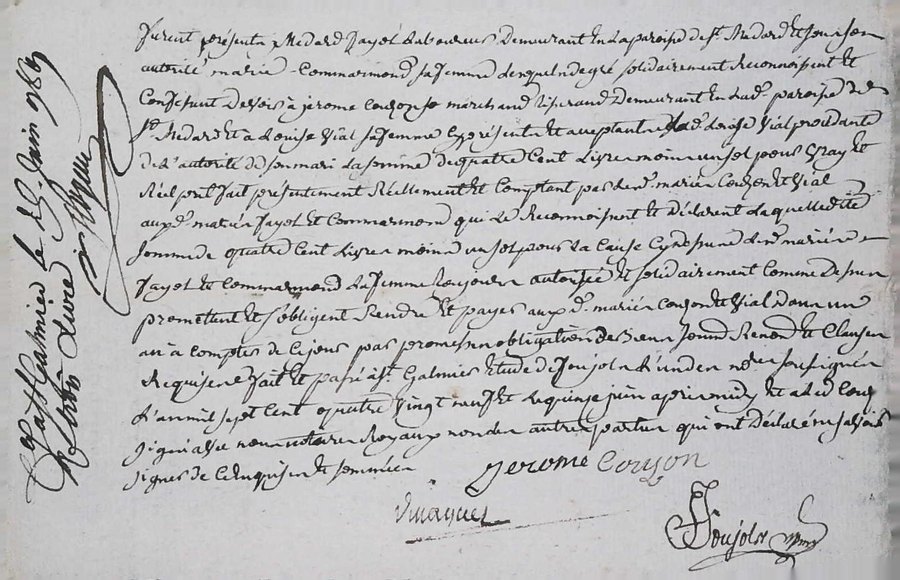 furent présents Medard Jayet Laboureur Demeurant En La paroise de St. Medard Et sous son
autorité marie Commarmond sa femme Lesquels de gré solidairement Reconnoisent Et
Confessent Devoir à jerome Couzon fre marchand Tisserand Demeurant En Lad. paroise de
St. Medard Et à Louise Vial sa femme Cy présents Et aceptants Lad. Louise Vial procedante
de L'autorité de son mari La somme de quatre Cent Livres moins un sol pour Vray Et
Réel prêt fait présentement Réellement Et Comptant par led. mariés Couzon Et Vial
auxd. mariés Jayet Et Commarmond qui Le Reconnoisent Et Déclarent Laquelle dite
somme de quatre Cent Livres moins un sol pour La Cause Cy desus led. mariés
Jayet Et Commarmond La femme toujours autorisée Et solidairement Comme Desus
prometent Et s'obligent Rendre Et payer auxd. mariés Couzon Et Vial Dans un
an à Compter de Ce jour par promesses obligations de Biens soum Renon Et Clauses
Requises fait Et pasé à St. Galmier Etude de Soujols L'un des nres soussignés
L'an mil sept Cent quatre Vingt neuf Et Le quinze juin après midy Et a led Couzon
signé avec nous notaires Royaux non les autres parties qui ont Déclaré ne savoir
signer de Ce Enquises Et sommées
jerome Couzon
Soujols
à St Galmier le 25. juin 1789
Reçu trois Livres